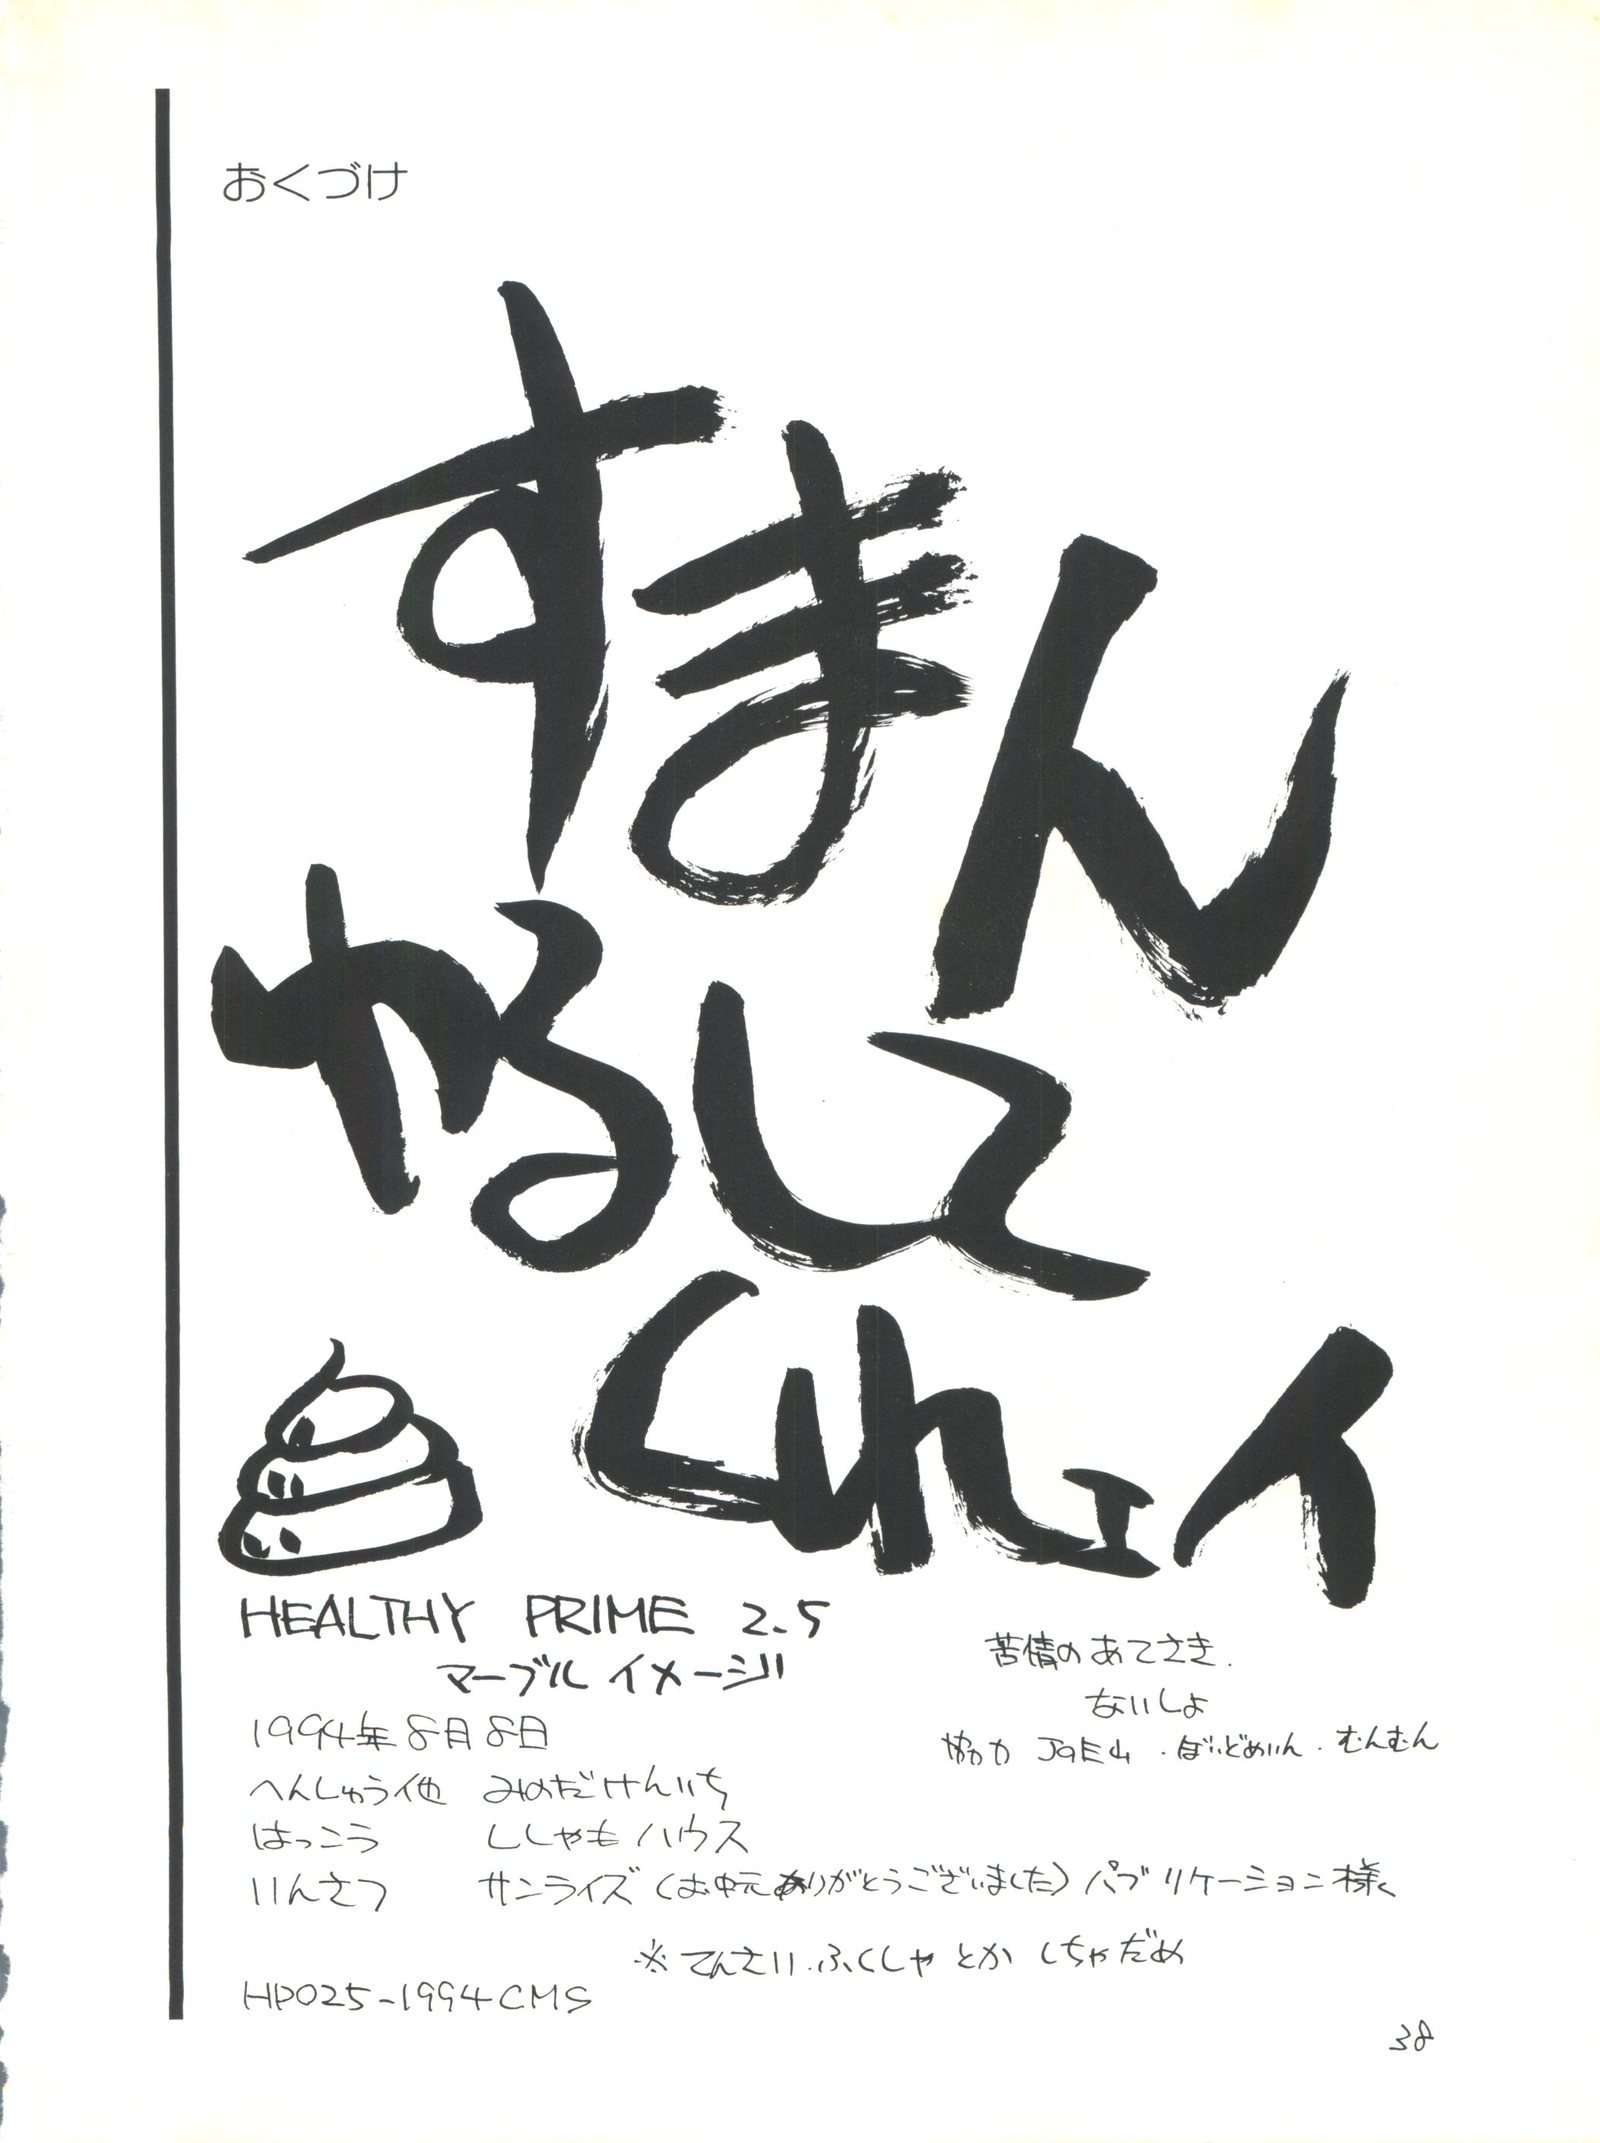 おくづけ
すまん
ゆるして
くれェイ
HEALTHY PRIME 2.5
マーブル イメージ
1994年8月8日
へんしゅう他 みのだけんいち
はっこう ししゃもハウス
いんさつ サンライズ(お中元ありがとうございました)パブリケーション様
苦情のあてさき.
ないしょ
協力 ・ぼいどめいん・むんむん
※てんさい・ふくしゃ とか しちゃだめ
HP025-1994CMS
38